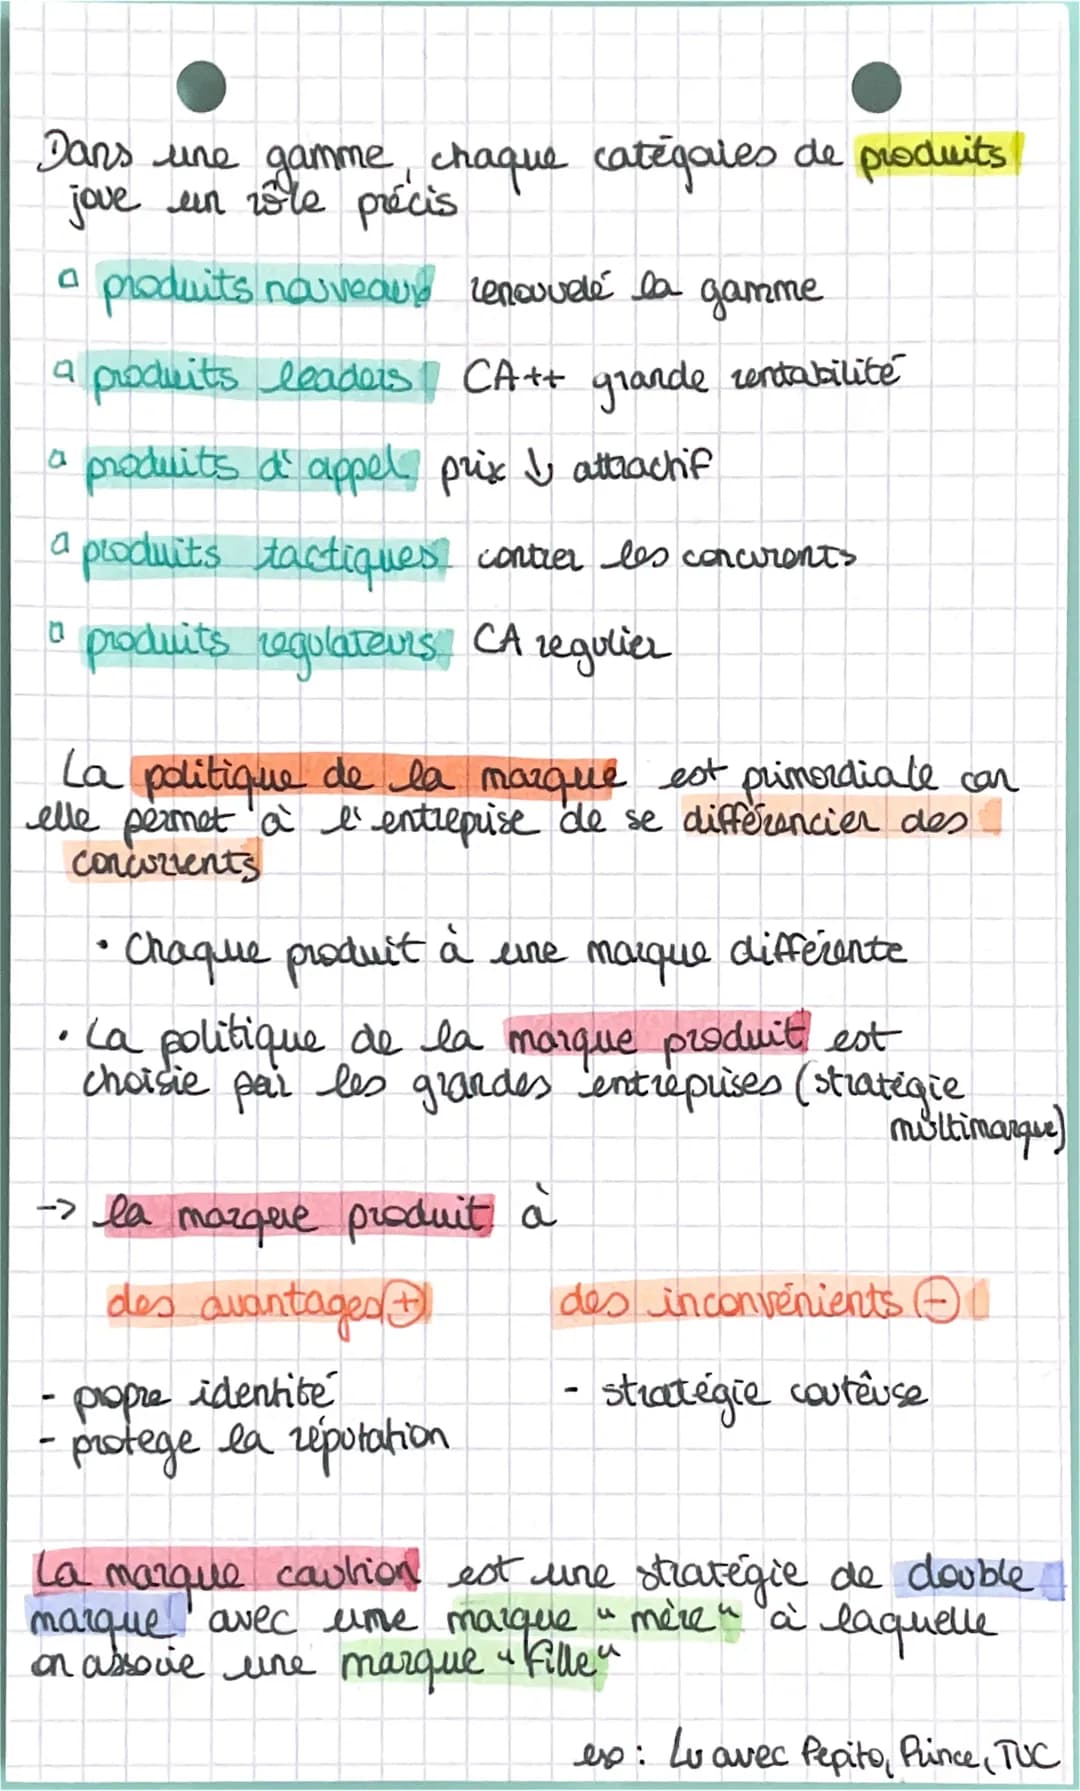 Dans une gamme, chaque catégories de produits
joue un rôle précis
produits nouveaux renouvelé la gamme
produits leaders CA++ grande rentabilité
produits d'appel prix ↓ attractif
produits tactiques contrer les concurents
produits regulateurs CA regulier
La politique de la marque est primordiale car
elle permet à l'entreprise de se différencier des
concurrents
• Chaque produit à une marque différente
• La politique de la marque produit est
choisie par les grandes entreprises (stratégie
multimarque)
-> la marque produit à
des avantages (+) des inconvénients (-)
- propre identité - stratégie coutêuse
- protege la réputation
La marque caution est une stratégie de double
marque avec une marque "mère" à laquelle
on associe une marque "fille"
ex : Lu avec Pepito, Prince, TUC